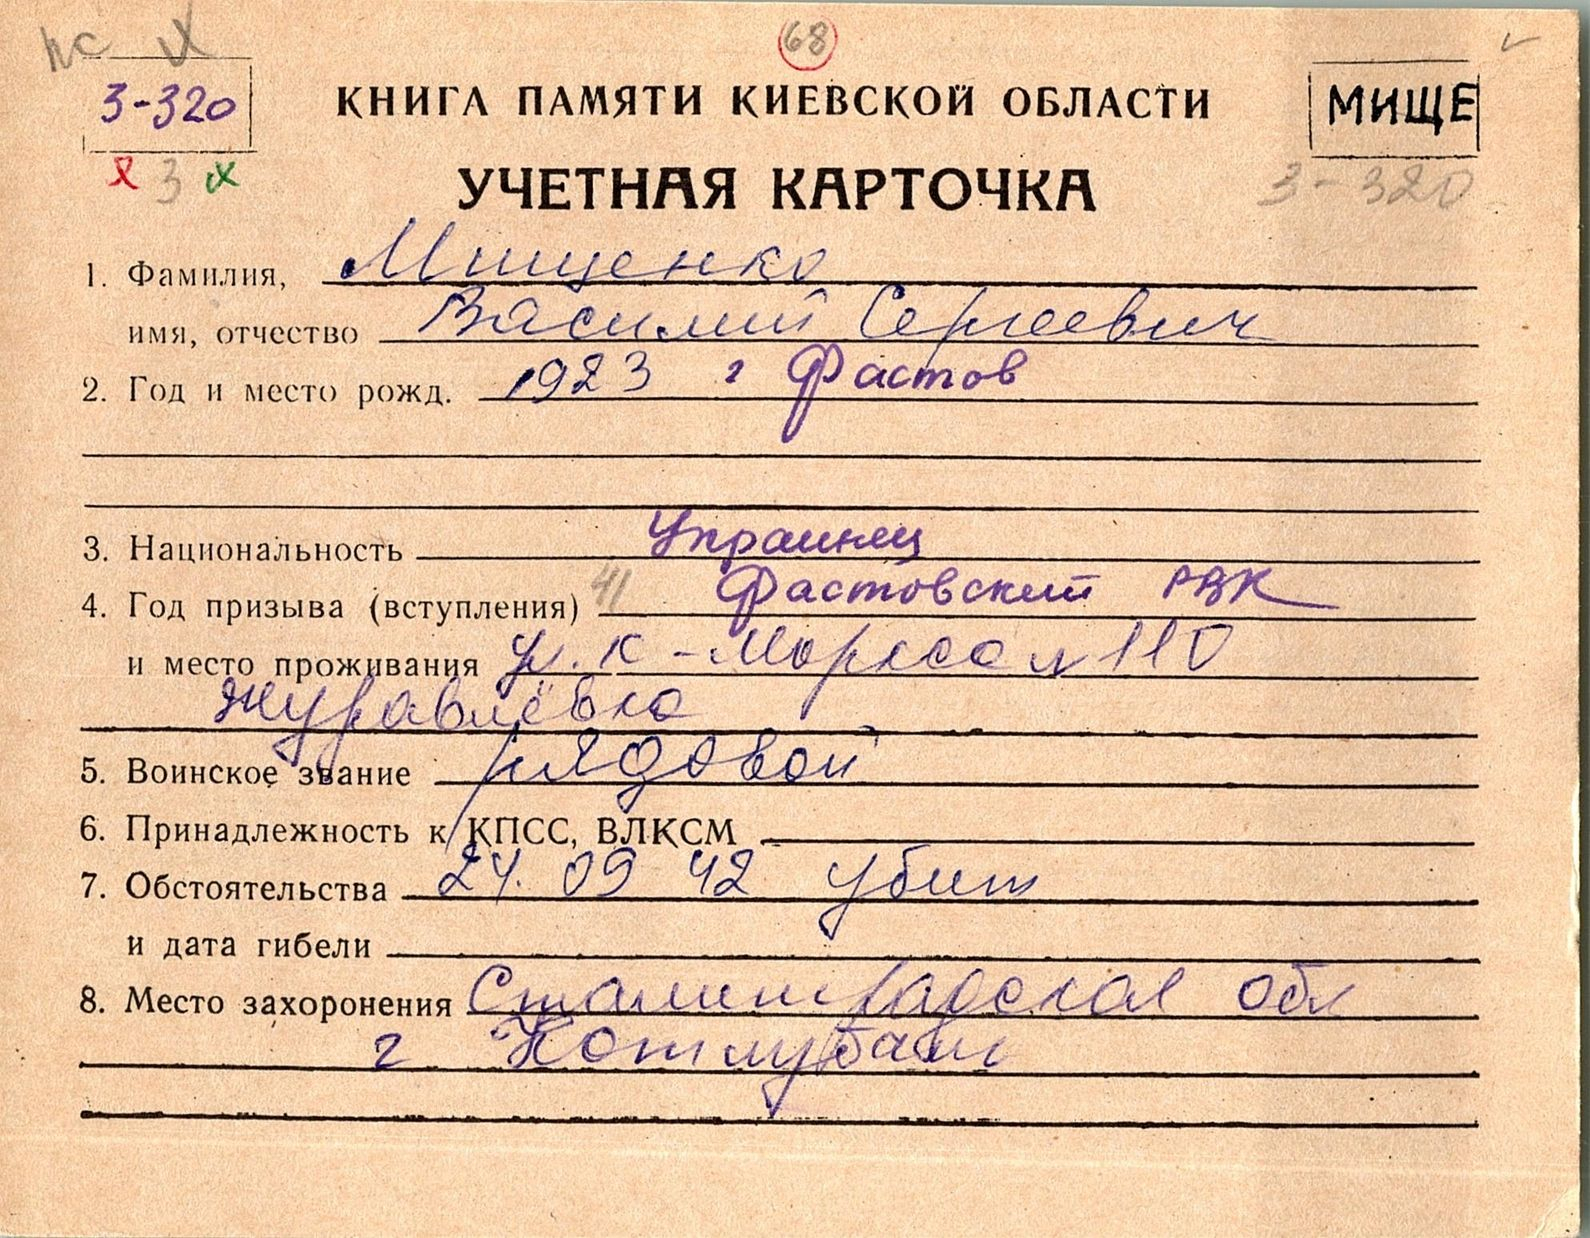 ПС
68
3-320
КНИГА ПАМЯТИ КИЕВСКОЙ ОБЛАСТИ
МИЩЕ
3
3-320
УЧЕТНАЯ КАРТОЧКА
1. Фамилия, Мищенко
имя, отчество Василий Сергеевич
2. Год и место рожд. 1923 г Фастов
3. Национальность Украинец
4. Год призыва (вступления) 41 Фастовский РВК
и место проживания ул. К-Маркса № 110
Журавлёвка
5. Воинское звание рядовой
6. Принадлежность к КПСС, ВЛКСМ
7. Обстоятельства 24. 09 42 убит
и дата гибели
8. Место захоронения Сталинградская обл
г Котлубань